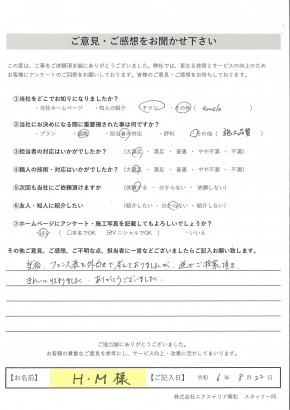 ご意見・ご感想をお聞かせ下さい
この度は、工事をご依頼頂き誠にありがとうございました。弊社では、更なる技術とサービスの向上のため
お客様にアンケートのご回答をお願いしております。皆様のご意見・ご感想をお待ちしております。
①当社をどこでお知りになりましたか?
・当社ホームページ ・知人の紹介 ・チラシ ・その他( )
②当社にお決めになる際に重要視された事は何ですか?
・プラン ・価格 ・担当者の対応 ・評判 ・その他( 施工品質 )
③担当者の対応はいかがでしたか? (大満足 ・ 満足 ・ 普通 ・ やや不満 ・ 不満)
④職人の技術・対応はいかがでしたか? (大満足 ・ 満足 ・ 普通 ・ やや不満 ・ 不満)
⑤次回も当社にご依頼頂けますか (依頼する ・ 分からない ・ 依頼しない)
⑥友人・知人に紹介したい (紹介したい ・ 分からない ・ 紹介しない)
⑦ホームページにアンケート・施工写真を記載してもよろしいでしょうか?
・はい ( □本名でOK ☑イニシャルでOK ) ・いいえ
その他ご意見、ご感想、ご不明な点、担当者に一言などございましたらご記入お願い致します。
当初、フェンス表を外向きで考えておりましたが、逆をご提案頂き
きれいに仕上りました。ありがとうございました。
ご協力誠にありがとうございました。
お客様の貴重なご意見を参考にし、サービス向上・改善に活かしてまいります。
【お名前】 H・M 様 【ご記入日】 令和 6 年 8 月 22 日
株式会社エクステリア興和 スタッフ一同